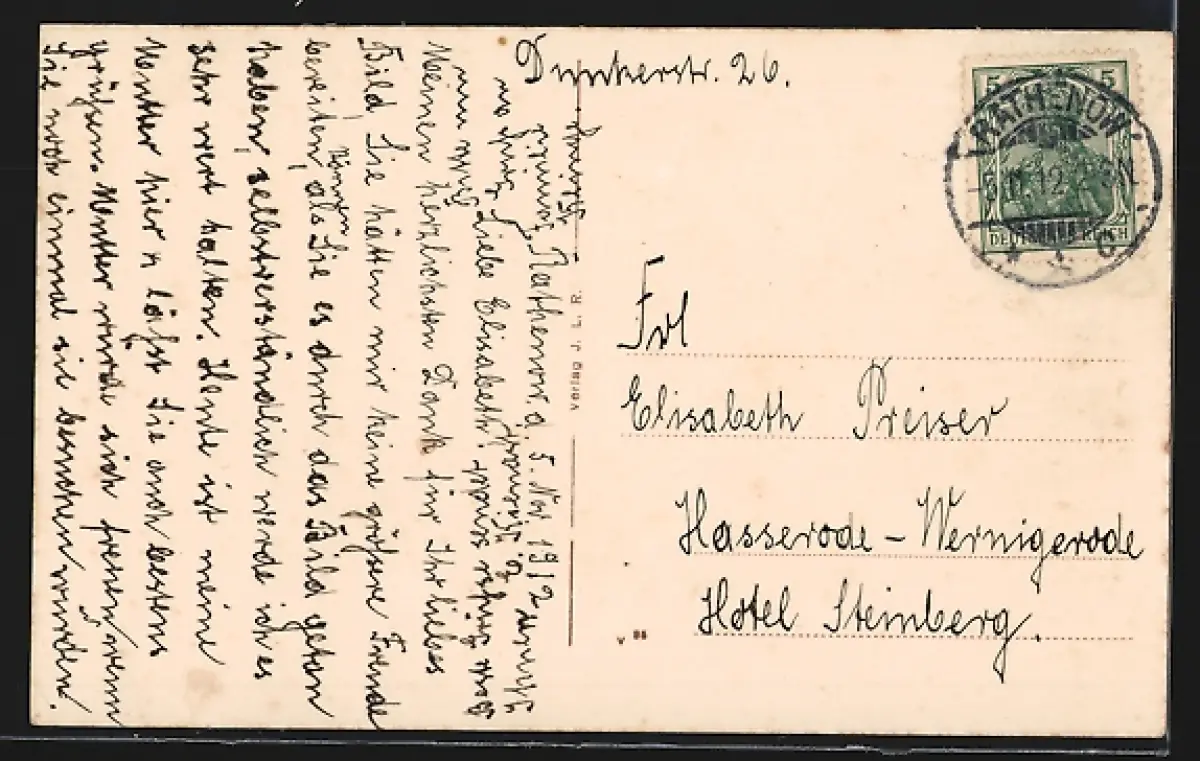 Dunkerstr. 26.
Rathenow d. 5. Nov. 1912
Liebe Elisabeth!
Meinen herzlichsten Dank für Ihr liebes
Bild, Sie hätten mir keine größere Freude
bereiten können, als Sie es durch das Bild getan
haben, selbstverständlich werde ich es
sehr wert halten. Heute ist meine
Mutter hier u läßt Sie auch bestens
grüßen. Mutter würde sich freuen, wenn
Sie noch einmal sie besuchen würden.
Verlag J. L. R.
5 5
RATHENOW
11.12
c
DEUTSCHES REICH
Frl
Elisabeth Preiser
Hasserode - Wernigerode
Hotel Steinberg.
V 88